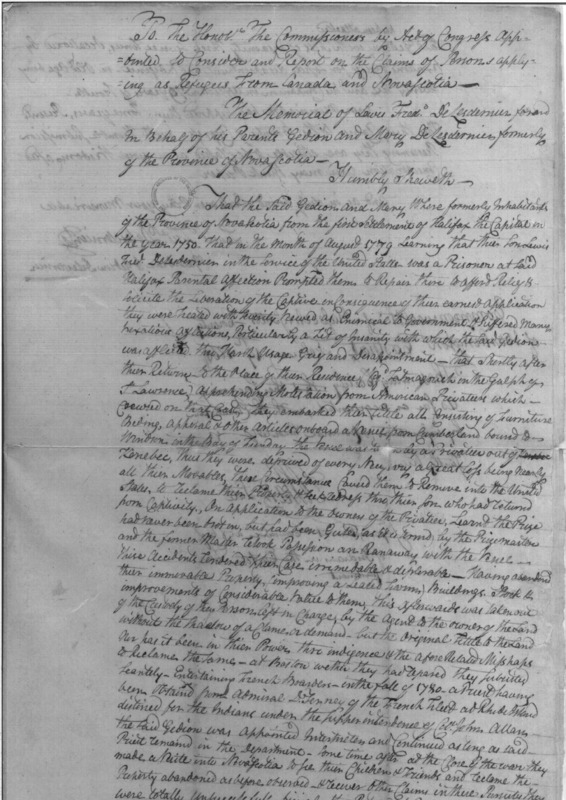 To. The Honble. The Commissioners by Act of Congress App-
=ointed to Consider and Report on the Claims of Persons apply-
=ing as Refugees From Canada and Novascotia—
The Memorial of Lewis Fredk. De Lesdernier for and
in Behalf of his Parents Gedion and Mary De Lesdernier formerly
of the Province of Novascotia—
Humbly Sheweth—
That the Said Gedion and Mary Where formerly Inhabitants
of the Province of Novascotia from the first Settlement of Halifax the Capital in
the Year 1750. That in the Month of August 1779 Learning that their Son Lewis
Fredk. Delesdernier in the Service of the United States was a Prisoner at Said
Halifax Parental Affection Prompted them to Repair there to afford Relief &
Solicite the Liberation of the Captive in Consequence of their earnest Application
they were treated with Severity Viewed as Inimical to Government & Suffered Many
Vexatious Particularly a Fit of Insanity with which the Said Gedion
was affected thro Harsh Usage Grief and Disapointment— That Shortly after
their Return to the Place of their Residence in the Gulph of
St Lawrence, apprehending Molestation from American Privateers which
Crewsed on that Coast, They embarked their Little all Consisting of Furniture
Beding, apparel & other Articles onboard a Vessel from Cumberland bound to
Windsor in the Bay of Fundy the Vessel was by a Privateer out of
Kenebec, thus they were deprived of every Necessary a Great Loss being Nearly
all their Movables, these Circumstance Caused them to Remove into the United
States, to Reclaim their Property & thro their Son, who had Returned
from Captivity, On application to the Owners of the Privateer, Learnd the Prize
had never been brot in, but had been by the Prizemaster
and the former Master took Possession and Ranaway with the Vessel—
These Accidents rendered their Case irremediable & deplorable— Having abandond
their immovable Property, Comprising a Leased Farm, Buildings Stock &
improvements of Considerable Value to them, this afterwards was taken out
of the Custody of the Person left in Charge, by the Agent to the owner of the Land
without the Shadow of a Claim or demand— but the Original Title to the Land
Nor has it been in their Power thro indigence & the afore Related Misshaps
to Reclaim the Same— at Boston wither they had repared they Subsisted
Scantily— Entertaining French Boarders— in the fall of 1780— a Priest having
been obtaind from Admiral of the French Fleet at Rhode Island
destined for the Indians under the Superintendence of Colo. John Allan
the Said Gedion was appointed Interpreter and Continued as long as Said
Priest remaind in the Department— Some time after at the Close of the war they
made a Visite into Novascotia to See their Children & Friends and reclame the
Property abandoned as before observed & recover other Claims in these Pursuits they
were totally unsuccessfull